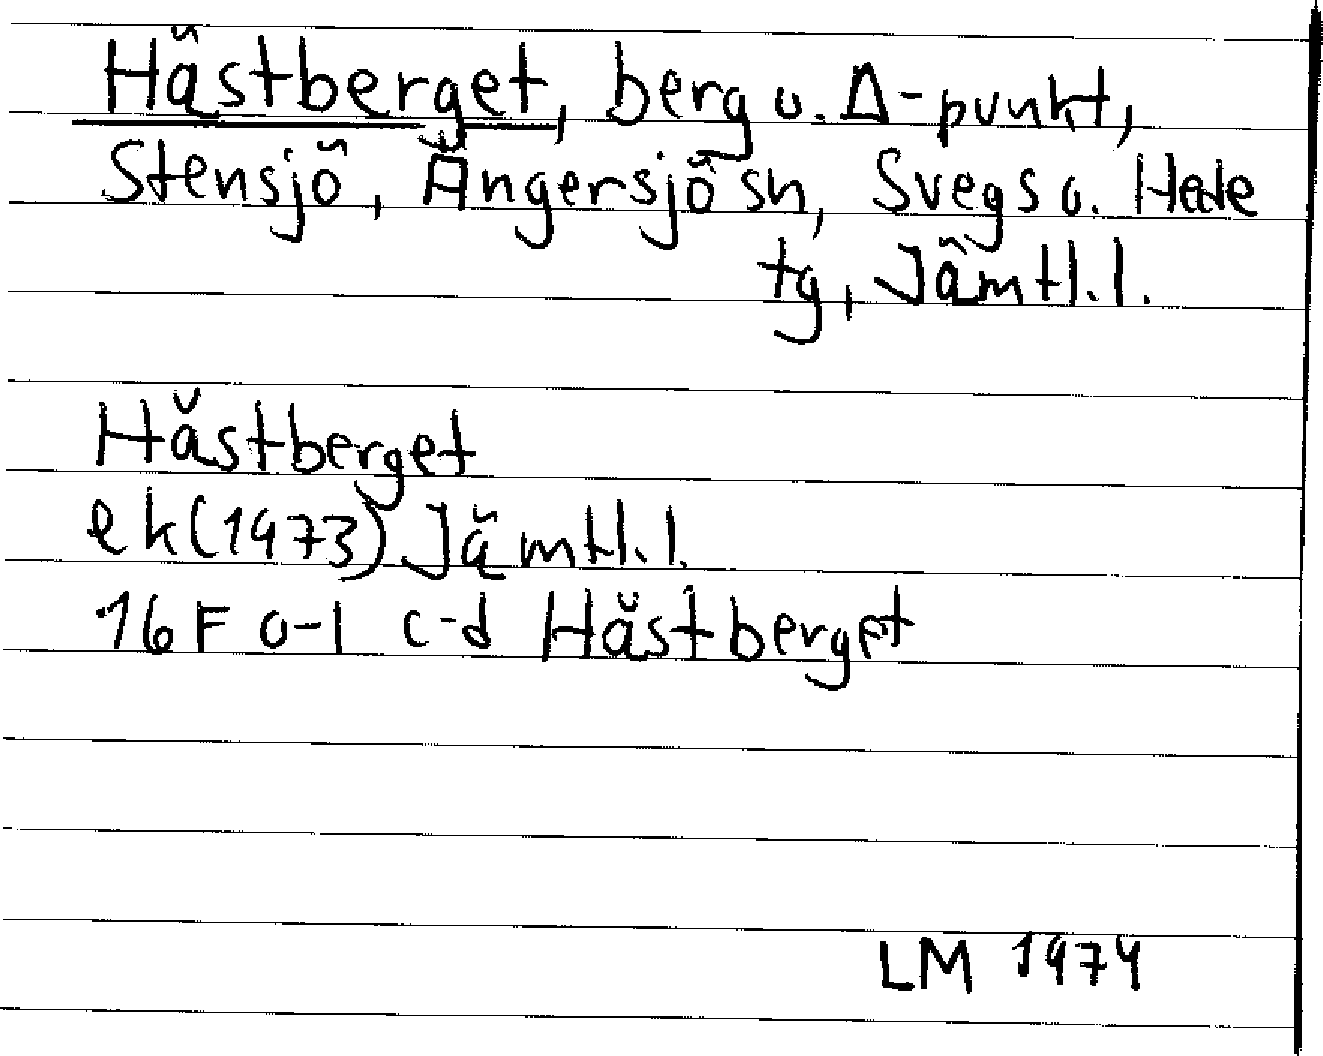 Hästberget, berg o. Δ-punkt,
Stensjö, Ängersjö sn, Svegs o. Hede
tg, Jämtl.l.
Hästberget
ek(1973) Jämtl.l.
16F 0-1 c-d Hästberget
LM 1974